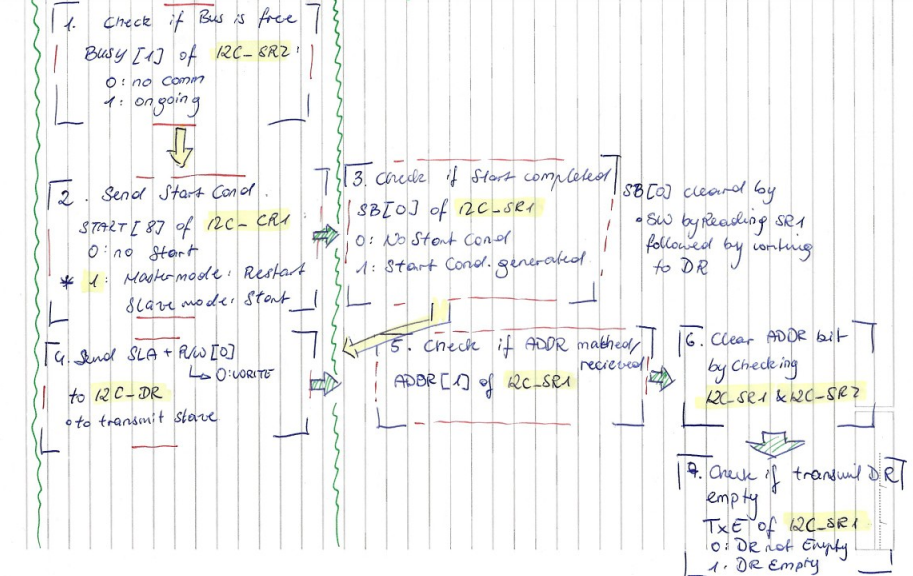 1. Check if Bus is free
BUSY [1] of I2C_SR2:
0: no comm
1: ongoing
2. Send Start Cond.
START[8] of I2C_CR1
0: no Start
* 1: Mastermode: Restart
Slave mode: Start
3. Check if Start completed
SB[0] of I2C_SR1
0: No Start Cond
1: Start Cond. generated
SB[0] cleard by
• SW by Reading SR1
followed by writing
to DR
4. Send SLA + R/W [0]
↳ 0: WRITE
to I2C_DR
• to transmit slave
5. Check if ADDR mathed/
recieved
ADDR [1] of I2C_SR1
6. Clear ADDR bit
by checking
I2C_SR1 & I2C_SR2
7. Check if transmit DR
empty
TxE of I2C_SR1
0: DR not Empty
1: DR Empty